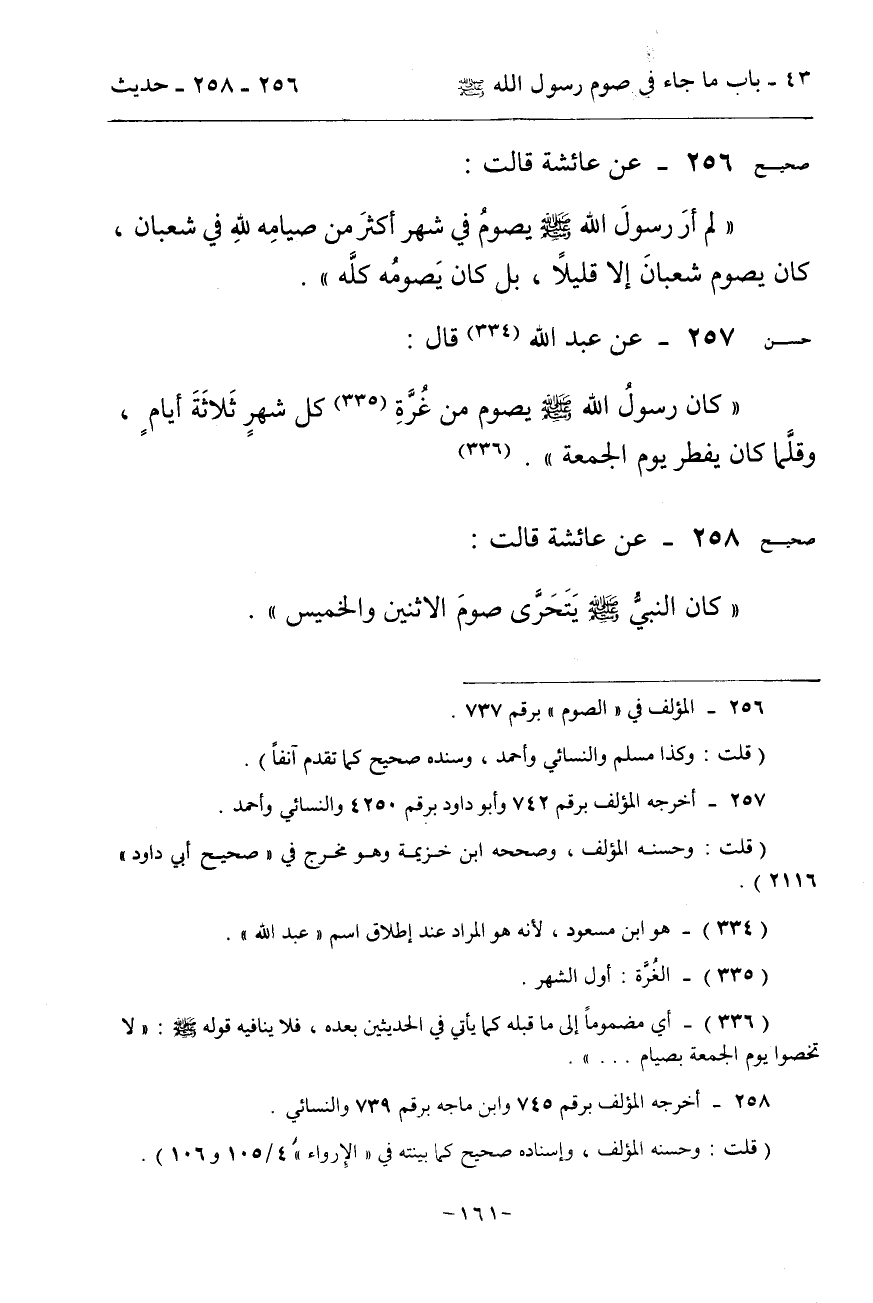 ٤٣ ـ باب ما جاء في صوم رسول الله ﷺ ٢٥٦ ـ ٢٥٨ ـ حديث
صحيح ٢٥٦ ـ عن عائشة قالت :
« لم أرَ رسولَ الله ﷺ يصومُ في شهر أكثرَ من صيامِه للهِ في شعبان ،
كان يصوم شعبانَ إلا قليلًا ، بل كان يَصومُه كلَّه » .
حسن ٢٥٧ ـ عن عبد الله (٣٣٤) قال :
« كان رسولُ الله ﷺ يصوم من غُرَّةِ (٣٣٥) كل شهرٍ ثَلاثَةَ أيامٍ ،
وقلَّما كان يفطر يوم الجمعة » . (٣٣٦)
صحيح ٢٥٨ ـ عن عائشة قالت :
« كان النبيُّ ﷺ يَتَحَرَّى صومَ الاثنين والخميس » .
٢٥٦ ـ المؤلف في « الصوم » برقم ٧٣٧ .
( قلت : وكذا مسلم والنسائي وأحمد ، وسنده صحيح كما تقدم آنفاً ) .
٢٥٧ ـ أخرجه المؤلف برقم ٧٤٢ وأبو داود برقم ٤٢٥٠ والنسائي وأحمد .
( قلت : وحسنه المؤلف ، وصححه ابن خزيمة وهو مخرج في « صحيح أبي داود »
٢١١٦ ) .
( ٣٣٤ ) ـ هو ابن مسعود ، لأنه هو المراد عند إطلاق اسم « عبد الله » .
( ٣٣٥ ) ـ الغُرَّة : أول الشهر .
( ٣٣٦ ) ـ أي مضموماً إلى ما قبله كما يأتي في الحديثين بعده ، فلا ينافيه قوله ﷺ : « لا
تخصوا يوم الجمعة بصيام . . . » .
٢٥٨ ـ أخرجه المؤلف برقم ٧٤٥ وابن ماجه برقم ٧٣٩ والنسائي .
( قلت : وحسنه المؤلف ، وإسناده صحيح كما بينته في « الإرواء » ٤/ ١٠٥ و ١٠٦ ) .
-١٦١-